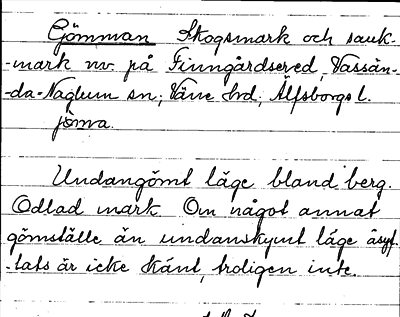 Gömman Skogsmark och sank-
-mark nv. på Finngårdsered, Vassän-
-da-Naglum sn; Väne hd; Älfsborgs l.
jöma.
Undangömt läge bland berg.
Odlad mark. Om något annat
gömställe än undanskymt läge åsyf-
-tats är icke känt, troligen inte.